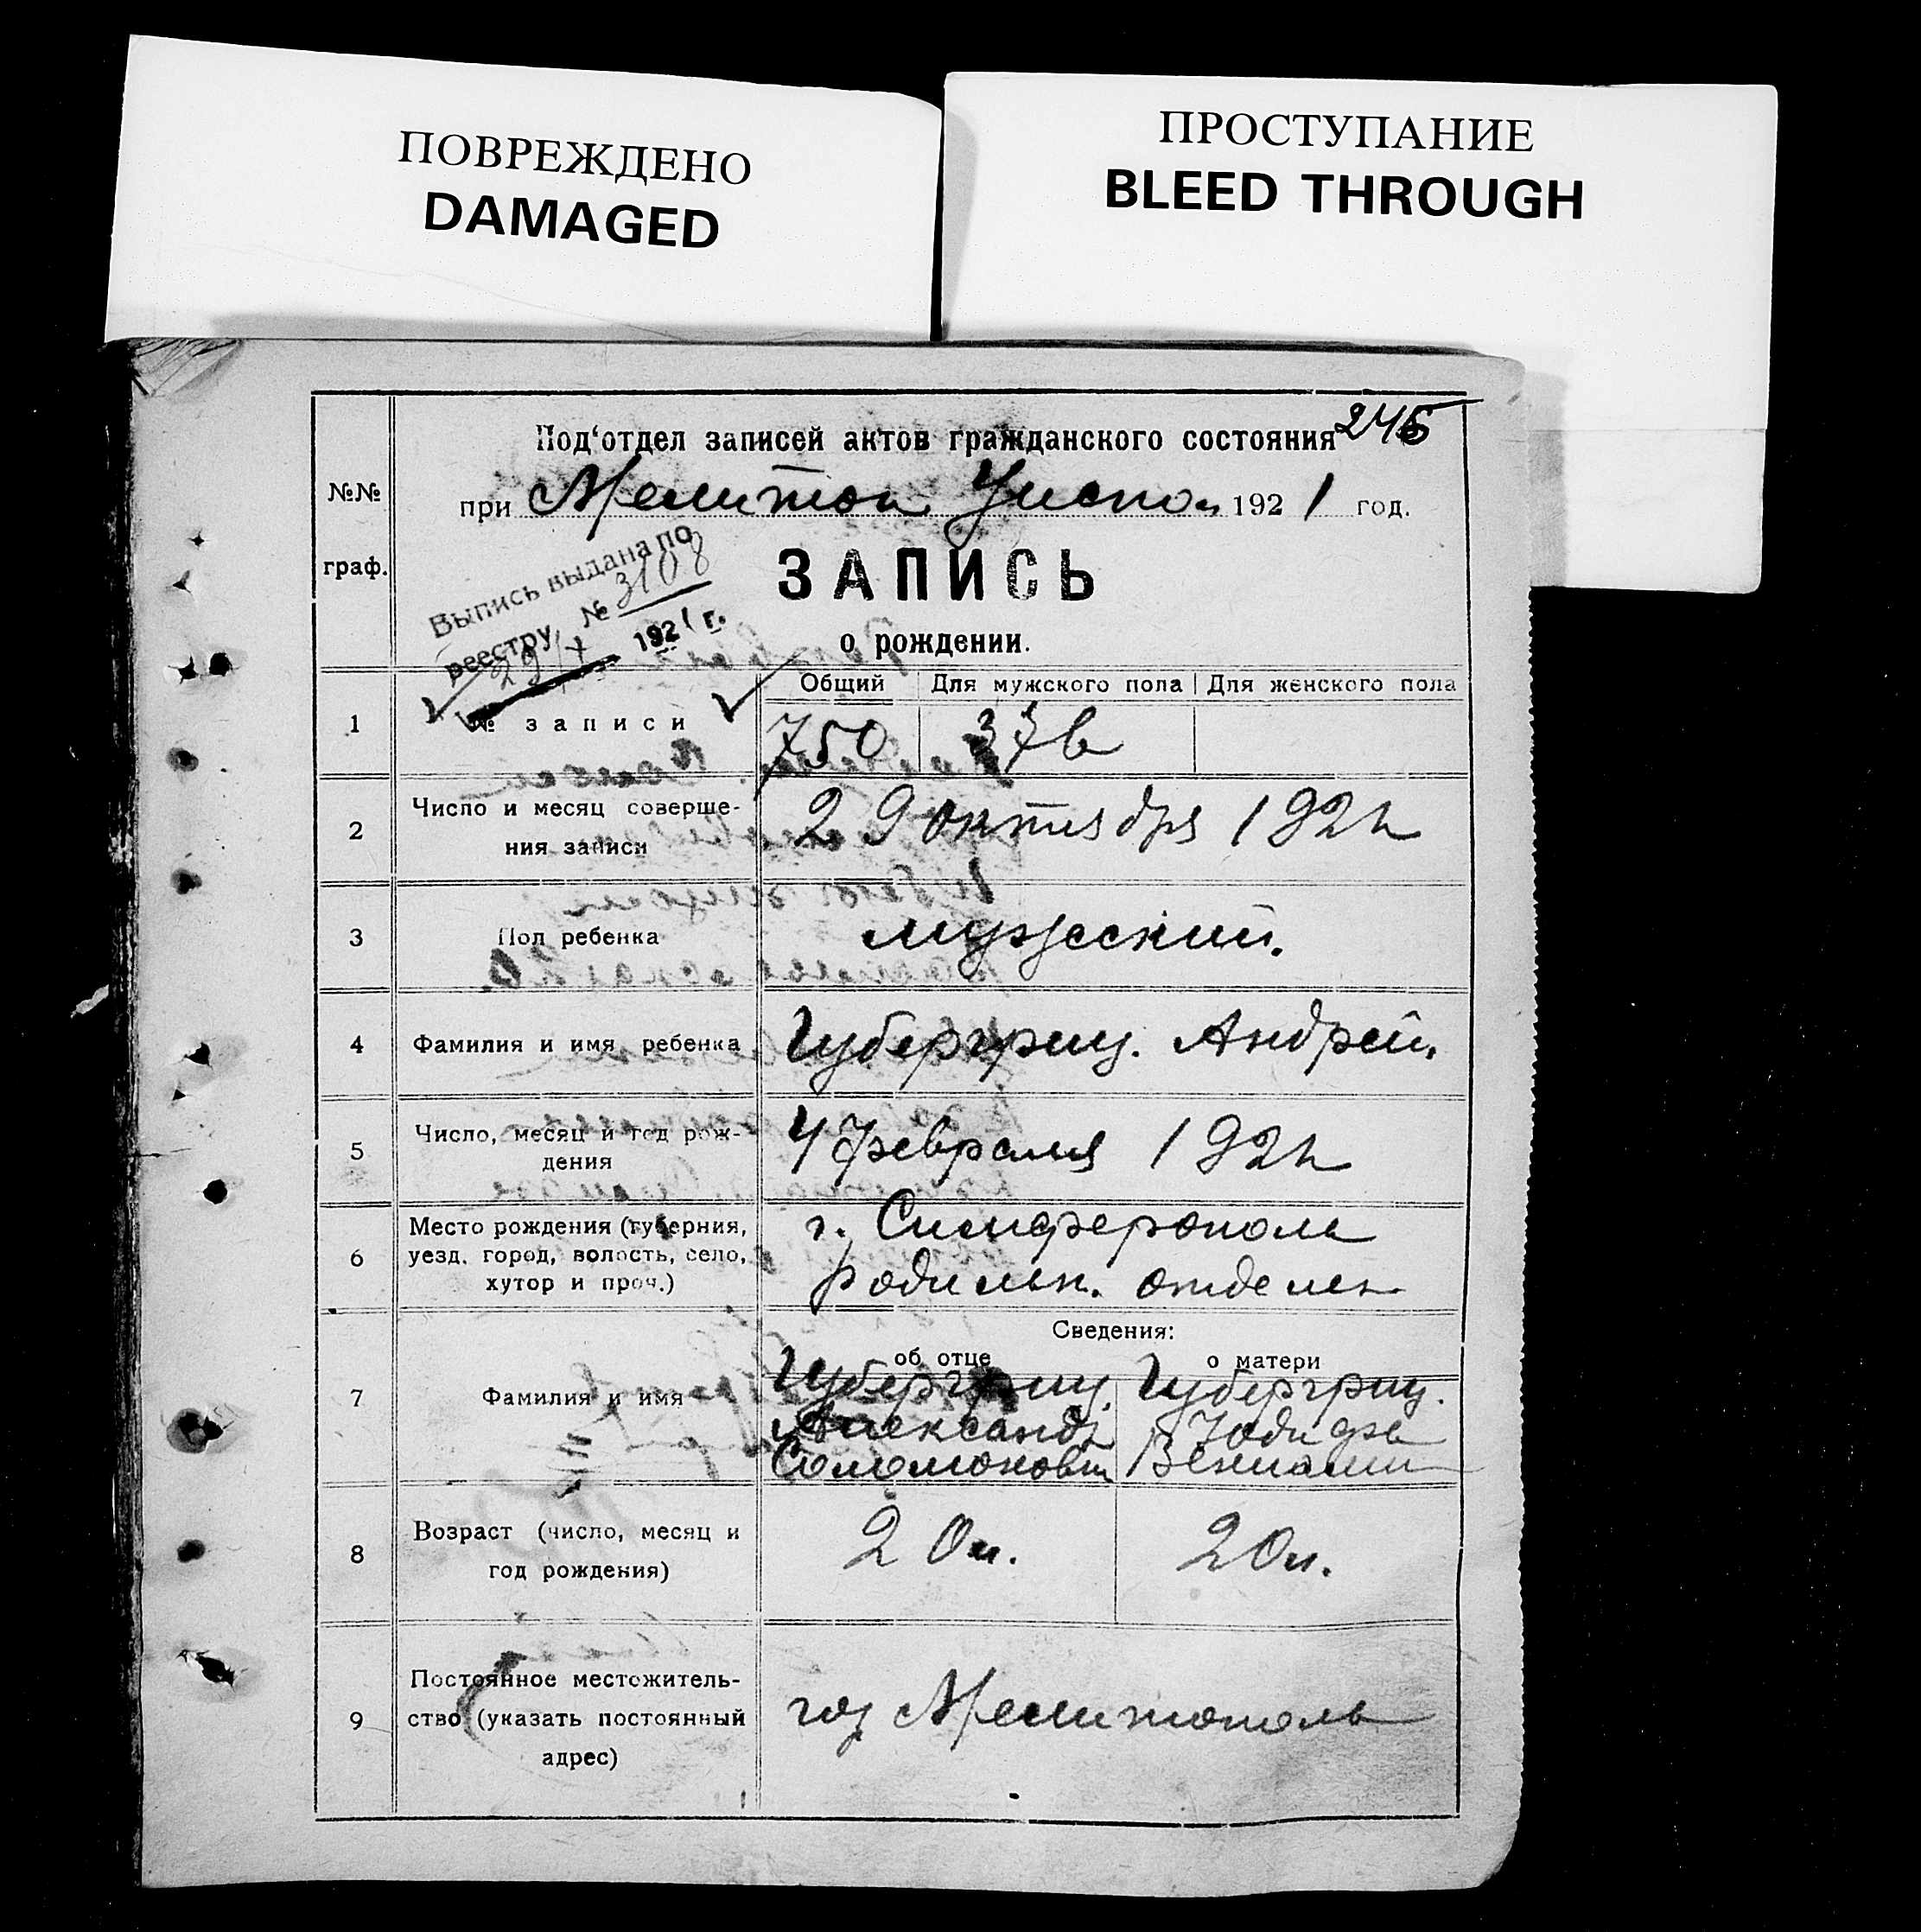 ПОВРЕЖДЕНО
DAMAGED
ПРОСТУПАНИЕ
BLEED THROUGH
Под'отдел записей актов гражданского состояния
№№ граф.
при Мелитоп Уиспол 1921 год.
Выпись выдана по
реестру, № 3108
29/X 1921 г.
ЗАПИСЬ
о рождении.
Общий Для мужского пола Для женского пола
1 № записи 750
2 Число и месяц соверше- 29 октября 192
ния записи
3 Пол ребенка мужеский.
4 Фамилия и имя ребенка Губергриц. Андрей.
5 Число, месяц и год рож- 4 февраля 192
дения
6 Место рождения (губерния, г. Симферополь
уезд, город, волость, село, родильн. отделен
хутор и проч.)
Сведения:
об отце о матери
7 Фамилия и имя Губергриц. Губергриц.
Александр Юдифь
Соломонович Вениамин
8 Возраст (число, месяц и 20 л. 20 л.
год рождения)
9 Постоянное местожитель- гор Мелитополь
ство (указать постоянный
адрес)